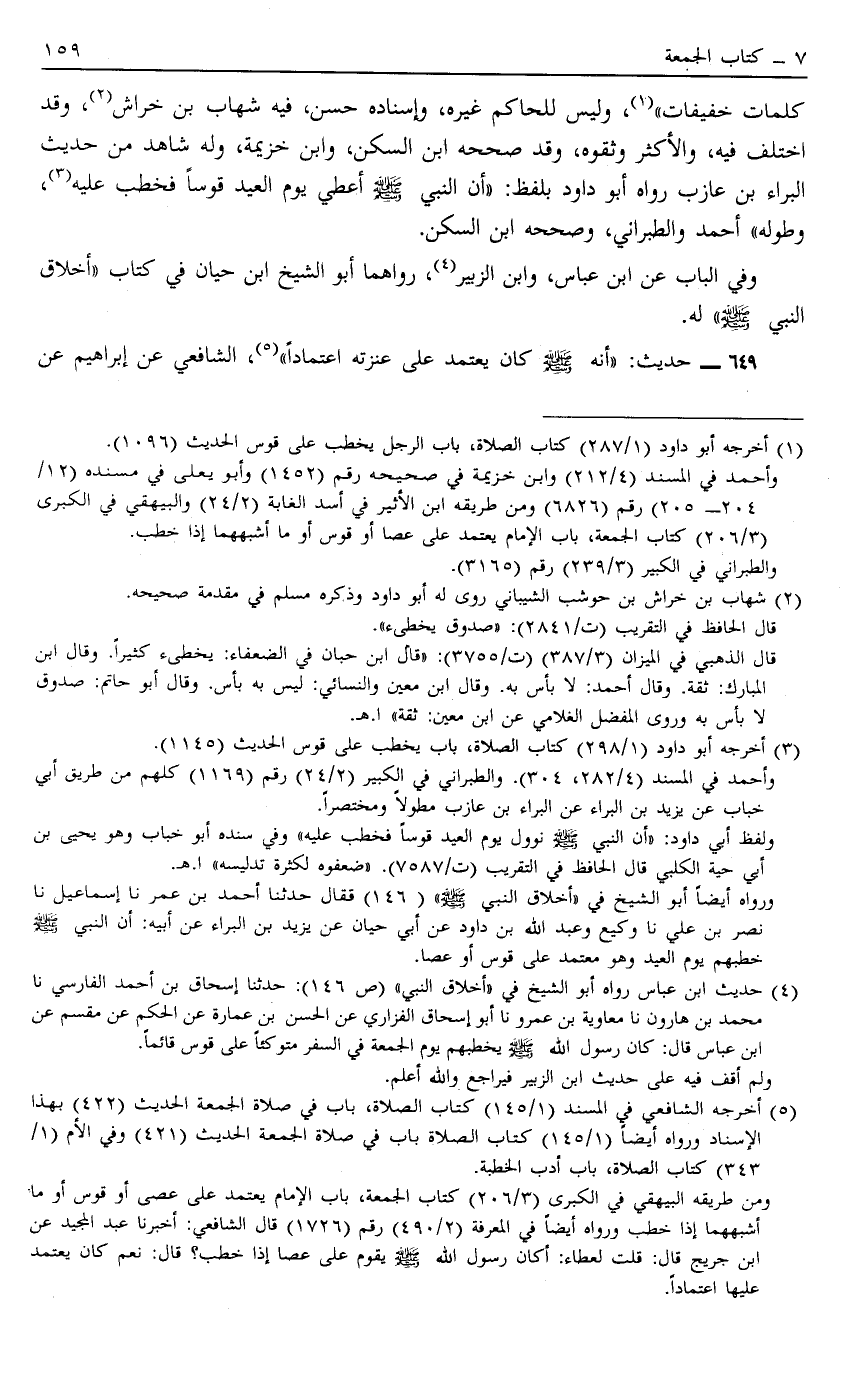 ٧ ــ كتاب الجمعة ١٥٩
كلمات خفيفات»(١)، وليس للحاكم غيره، وإسناده حسن، فيه شهاب بن خراش(٢)، وقد
اختلف فيه، والأكثر وثقوه، وقد صححه ابن السكن، وابن خزيمة، وله شاهد من حديث
البراء بن عازب رواه أبو داود بلفظ: «أن النبي ﷺ أعطي يوم العيد قوساً فخطب عليه(٣)،
وطوله» أحمد والطبراني، وصححه ابن السكن.
وفي الباب عن ابن عباس، وابن الزبير(٤)، رواهما أبو الشيخ ابن حيان في كتاب «أخلاق
النبي ﷺ» له.
٦٤٩ ــ حديث: «أنه ﷺ كان يعتمد على عنزته اعتماداً»(٥)، الشافعي عن إبراهيم عن
(١) أخرجه أبو داود (٢٨٧/١) كتاب الصلاة، باب الرجل يخطب على قوس الحديث (١٠٩٦).
وأحمد في المسند (٢١٢/٤) وابن خزيمة في صحيحه رقم (١٤٥٢) وأبو يعلى في مسنده (١٢/
٢٠٤ــ ٢٠٥) رقم (٦٨٢٦) ومن طريقه ابن الأثير في أسد الغابة (٢٤/٢) والبيهقي في الكبرى
(٢٠٦/٣) كتاب الجمعة، باب الإمام يعتمد على عصا أو قوس أو ما أشبههما إذا خطب.
والطبراني في الكبير (٢٣٩/٣) رقم (٣١٦٥).
(٢) شهاب بن خراش بن حوشب الشيباني روى له أبو داود وذكره مسلم في مقدمة صحيحه.
قال الحافظ في التقريب (ت/٢٨٤١): «صدوق يخطىء».
قال الذهبي في الميزان (٣٨٧/٣) (ت/٣٧٥٥): «قال ابن حبان في الضعفاء: يخطىء كثيراً. وقال ابن
المبارك: ثقة. وقال أحمد: لا بأس به. وقال ابن معين والنسائي: ليس به بأس. وقال أبو حاتم: صدوق
لا بأس به وروى المفضل الغلامي عن ابن معين: ثقة» ا.هـ.
(٣) أخرجه أبو داود (٢٩٨/١) كتاب الصلاة، باب يخطب على قوس الحديث (١١٤٥).
وأحمد في المسند (٢٨٢/٤، ٣٠٤). والطبراني في الكبير (٢٤/٢) رقم (١١٦٩) كلهم من طريق أبي
خباب عن يزيد بن البراء عن البراء بن عازب مطولاً ومختصراً.
ولفظ أبي داود: «أن النبي ﷺ نوول يوم العيد قوساً فخطب عليه» وفي سنده أبو خباب وهو يحيى بن
أبي حية الكلبي قال الحافظ في التقريب (ت/٧٥٨٧). «ضعفوه لكثرة تدليسه» ا.هـ.
ورواه أيضاً أبو الشيخ في «أخلاق النبي ﷺ» ( ١٤٦) فقال حدثنا أحمد بن عمر نا إسماعيل نا
نصر بن علي نا وكيع وعبد الله بن داود عن أبي حيان عن يزيد بن البراء عن أبيه: أن النبي ﷺ
خطبهم يوم العيد وهو معتمد على قوس أو عصا.
(٤) حديث ابن عباس رواه أبو الشيخ في «أخلاق النبي» (ص ١٤٦): حدثنا إسحاق بن أحمد الفارسي نا
محمد بن هارون نا معاوية بن عمرو نا أبو إسحاق الفزاري عن الحسن بن عمارة عن الحكم عن مقسم عن
ابن عباس قال: كان رسول الله ﷺ يخطبهم يوم الجمعة في السفر متوكئاً على قوس قائماً.
ولم أقف فيه على حديث ابن الزبير فيراجع والله أعلم.
(٥) أخرجه الشافعي في المسند (١٤٥/١) كتاب الصلاة، باب في صلاة الجمعة الحديث (٤٢٢) بهذا
الإسناد ورواه أيضاً (١٤٥/١) كتاب الصلاة باب في صلاة الجمعة الحديث (٤٢١) وفي الأم (١/
٣٤٣) كتاب الصلاة، باب أدب الخطبة.
ومن طريقه البيهقي في الكبرى (٢٠٦/٣) كتاب الجمعة، باب الإمام يعتمد على عصى أو قوس أو ما
أشبههما إذا خطب ورواه أيضاً في المعرفة (٤٩٠/٢) رقم (١٧٢٦) قال الشافعي: أخبرنا عبد المجيد عن
ابن جريج قال: قلت لعطاء: أكان رسول الله ﷺ يقوم على عصا إذا خطب؟ قال: نعم كان يعتمد
عليها اعتماداً.